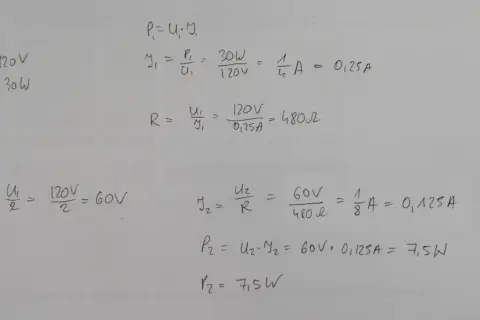 P₁ = U₁·I₁
120V
30W
I₁ = P₁/U₁ = 30W/120V = 1/4 A = 0,25A
R = U₁/I₁ = 120V/0,25A = 480Ω
U₁/2 = 120V/2 = 60V
I₂ = U₂/R = 60V/480Ω = 1/8 A = 0,125A
P₂ = U₂·I₂ = 60V · 0,125A = 7,5W
P₂ = 7,5W